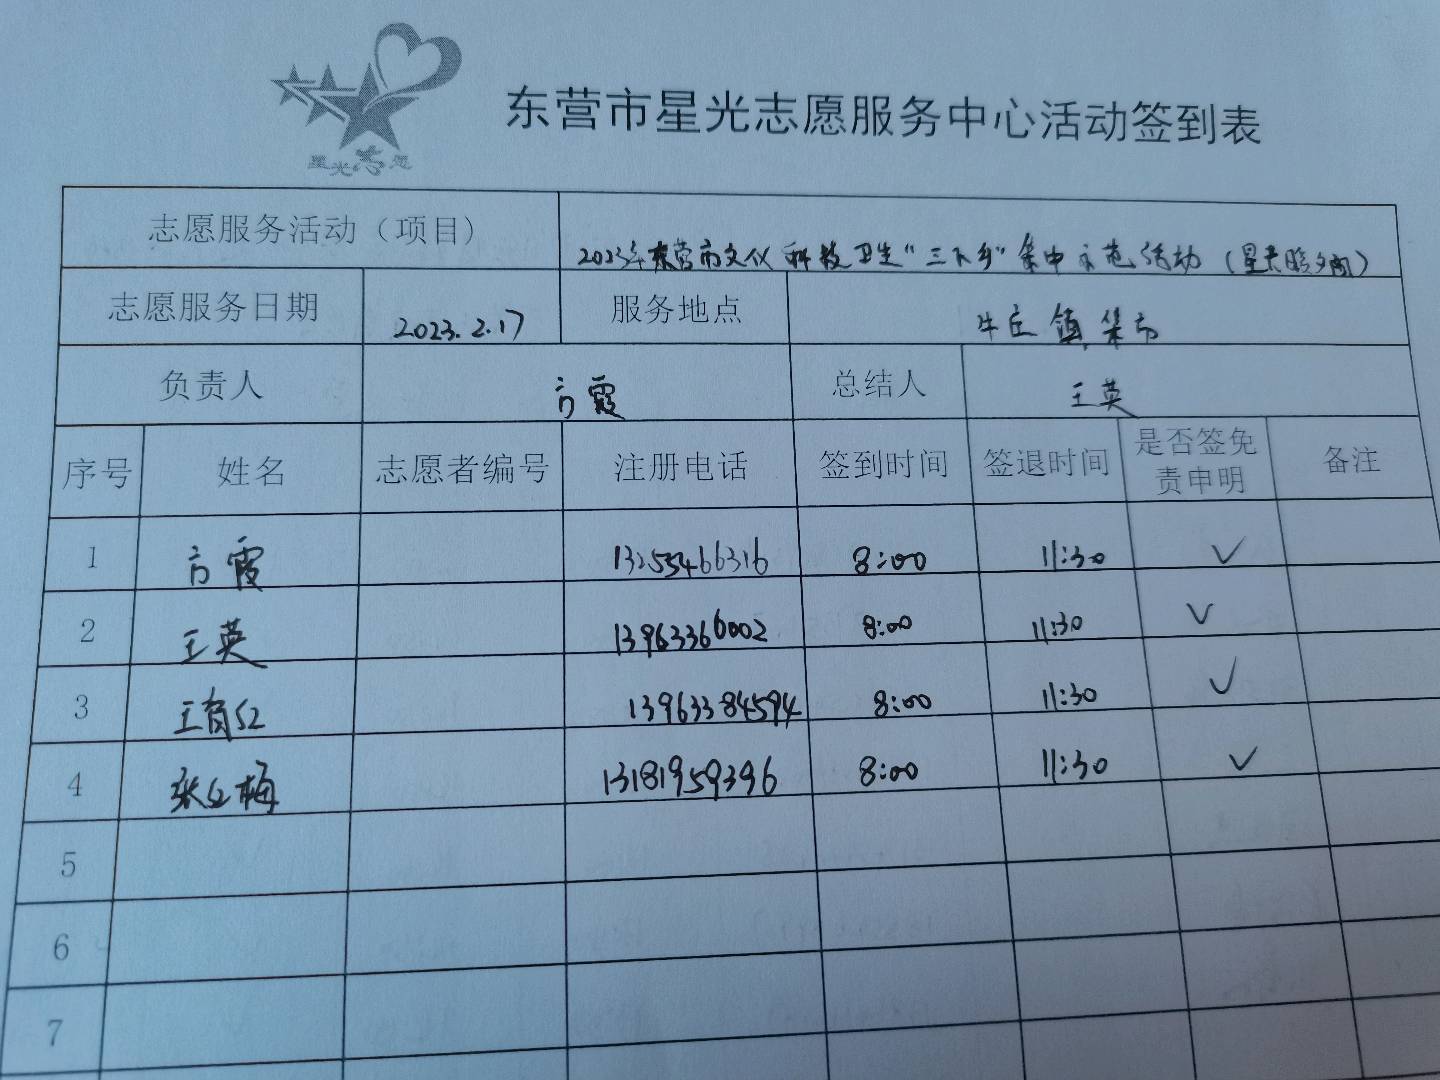 星光志愿
东营市星光志愿服务中心活动签到表
志愿服务活动（项目） 2023年东营市文化科技卫生“三下乡”集中示范活动（星光
志愿服务日期 2023.2.17 服务地点 牛庄镇集市
负责人 方霞 总结人 王英
序号 姓名 志愿者编号 注册电话 签到时间 签退时间 是否签免责申明 备注
1 方霞 13255466316 8:00 11:30 ✓
2 王英 13963366002 8:00 11:30 ✓
3 王育红 13963384594 8:00 11:30 ✓
4 张红梅 13181959396 8:00 11:30 ✓
5
6
7